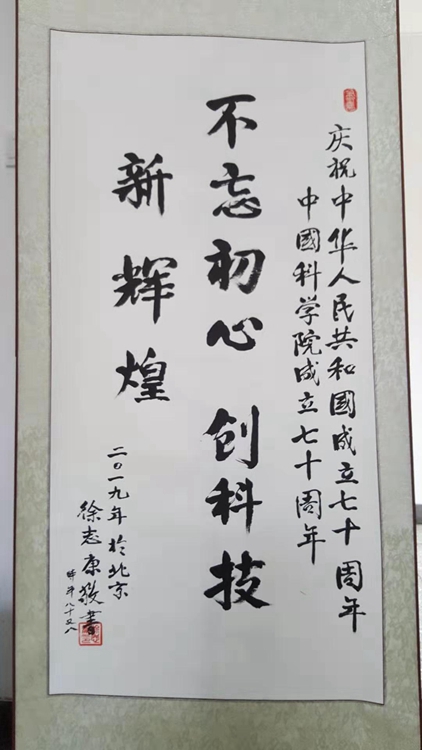 庆祝中华人民共和國成立七十周年
中國科学院成立七十周年
不忘初心 创科技
新辉煌
二〇一九年於北京
徐志康敬書